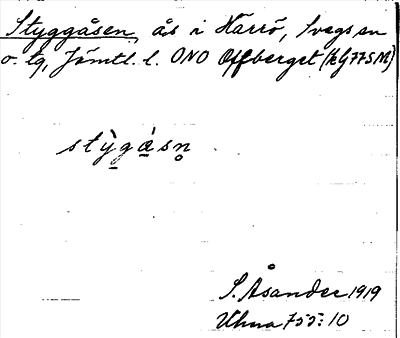 Styggåsen, ås i Härrö, Svegs sn
o. tg, Jämtl. l. ONO Offberget (hG77SM)
stỳgásn
S. Åsander 1919
Uhna 755:10